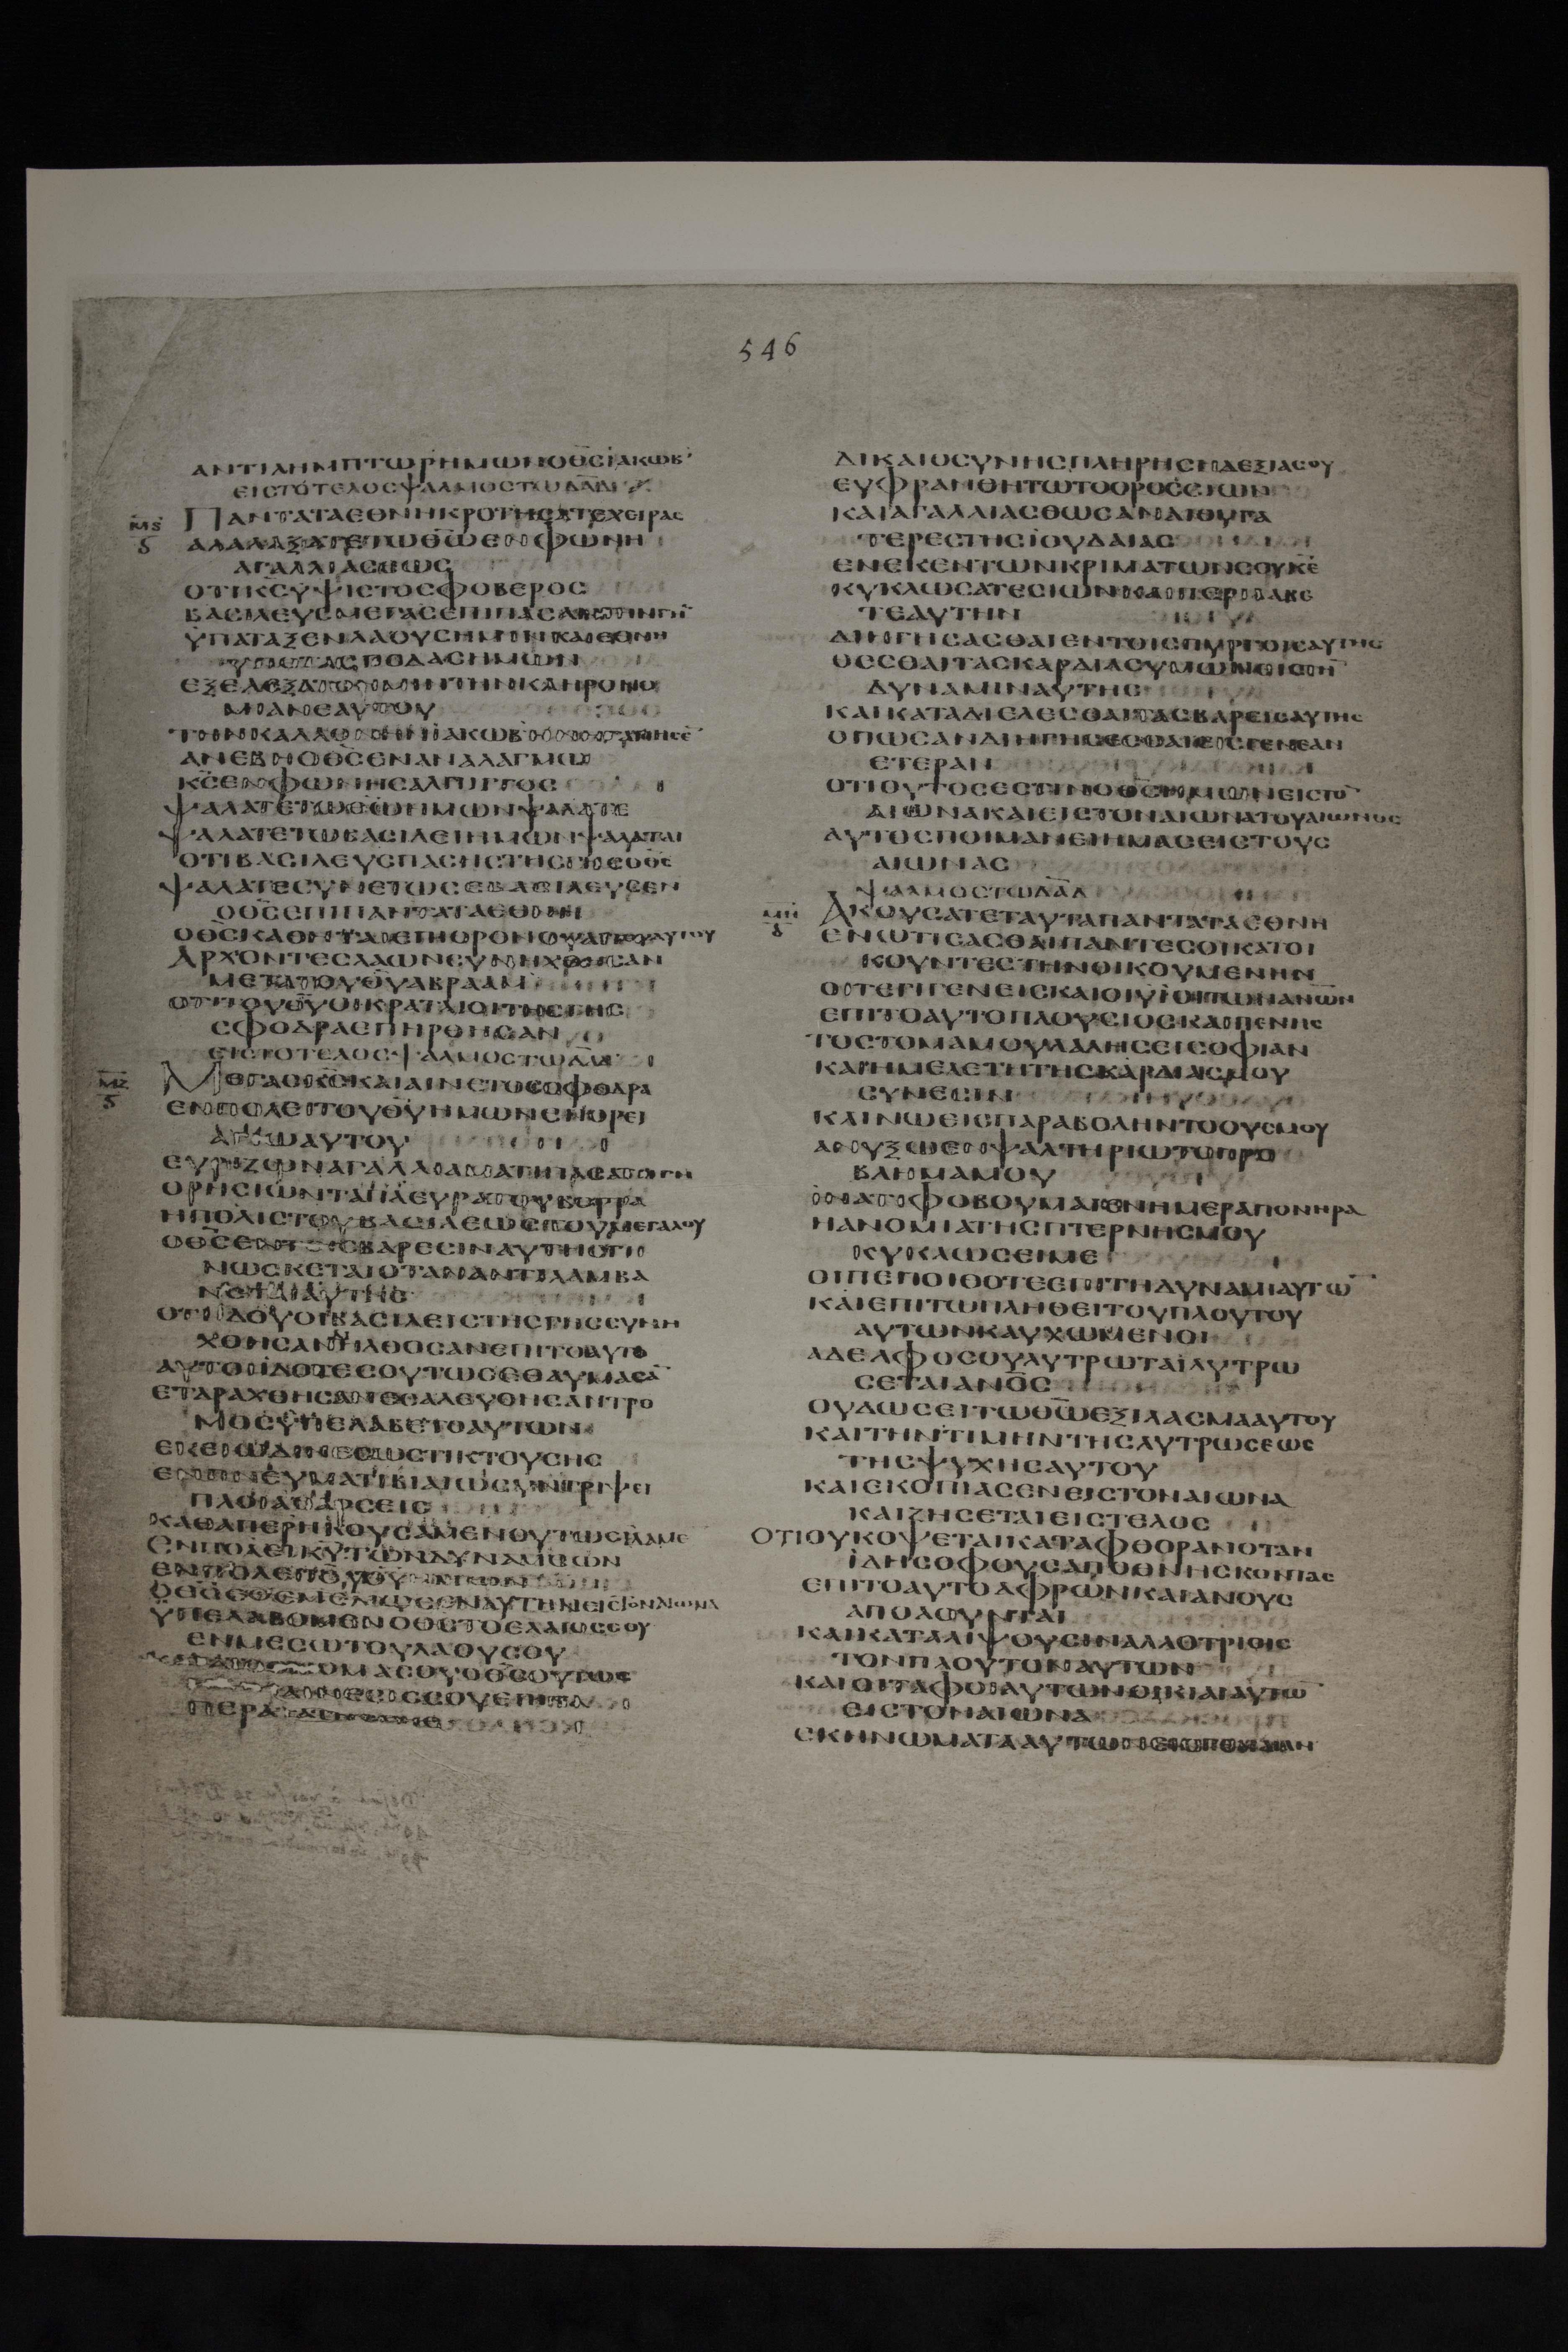 546
ΑΝΤΙΛΗΜΠΤΩΡΗΜΩΝΟΘ̅Σ̅ΙΑΚΩΒ
ΕΙΣΤΟΤΕΛΟΣΨΑΛΜΟΣΤΩΔΑ̅Δ̅
ΜϚ ΠΑΝΤΑΤΑΕΘΝΗΚΡΟΤΗΣΑΤΕΧΕΙΡΑΣ
ΑΛΑΛΑΞΑΤΕΤΩΘ̅Ω̅ΕΝΦΩΝΗ
ΑΓΑΛΛΙΑΣΕΩΣ
ΟΤΙΚ̅Σ̅ΥΨΙΣΤΟΣΦΟΒΕΡΟΣ
ΒΑΣΙΛΕΥΣΜΕΓΑΣΕΠΙΠΑΣΑΝΤΗΝΓΗ̅
ΥΠΑΤΑΞΕΝΛΑΟΥΣΗΜΙΝΚΑΙΕΘΝΗ
ΥΠΟΤΟΥΣΠΟΔΑΣΗΜΩΝ
ΕΞΕΛΕΞΑΤΟΗΜΙΝΤΗΝΚΛΗΡΟΝΟ
ΜΙΑΝΕΑΥΤΟΥ
ΤΗΝΚΑΛΛΟΝΗΝΙΑΚΩΒ
ΑΝΕΒΗΟΘ̅Σ̅ΕΝΑΛΑΛΑΓΜΩ
Κ̅Σ̅ΕΝΦΩΝΗΣΑΛΠΙΓΓΟΣ
ΨΑΛΑΤΕΤΩΘ̅Ω̅ΗΜΩΝΨΑΛΑΤΕ
ΨΑΛΑΤΕΤΩΒΑΣΙΛΕΙΗΜΩΝΨΑΛΑΤΑΙ
ΟΤΙΒΑΣΙΛΕΥΣΠΑΣΗΣΤΗΣΓΗΣΟΘ̅Σ̅
ΨΑΛΑΤΕΣΥΝΕΤΩΣΕΒΑΣΙΛΕΥΣΕΝ
ΟΘ̅Σ̅ΕΠΙΠΑΝΤΑΤΑΕΘΝΗ
ΟΘ̅Σ̅ΚΑΘΗΤΑΙΕΠΙΘΡΟΝΟΥΑΓΙΟΥΑΥΤΟΥ
ΑΡΧΟΝΤΕΣΛΑΩΝΣΥΝΗΧΘΗΣΑΝ
ΜΕΤΑΤΟΥΘ̅Υ̅ΑΒΡΑΑΜ
ΟΤΙΤΟΥΘ̅Υ̅ΟΙΚΡΑΤΑΙΟΙΤΗΣΓΗΣ
ΣΦΟΔΡΑΕΠΗΡΘΗΣΑΝ
ΕΙΣΤΟΤΕΛΟΣΨΑΛΜΟΣΤΩΔΑ̅Δ̅
ΜΖ ΜΕΓΑΣΚ̅Σ̅ΚΑΙΑΙΝΕΤΟΣΣΦΟΔΡΑ
ΕΝΠΟΛΕΙΤΟΥΘ̅Υ̅ΗΜΩΝΕΝΟΡΕΙ
ΑΓΙΩΑΥΤΟΥ
ΕΥΡΙΖΩΝΑΓΑΛΛΙΑΜΑΤΙΠΑΣΑΤΗΓΗ
ΟΡΗΣΙΩΝΤΑΠΛΕΥΡΑΤΟΥΒΟΡΡΑ
ΗΠΟΛΙΣΤΟΥΒΑΣΙΛΕΩΣΤΟΥΜΕΓΑΛΟΥ
ΟΘ̅Σ̅ΕΝΤΑΙΣΒΑΡΕΣΙΝΑΥΤΗΣΓΙ
ΝΩΣΚΕΤΑΙΟΤΑΝΑΝΤΙΛΑΜΒΑ
ΝΗΤΑΙΑΥΤΗΣ
ΟΤΙΙΔΟΥΟΙΒΑΣΙΛΕΙΣΤΗΣΓΗΣΣΥΝΗ
ΧΘΗΣΑΝΗΛΘΟΣΑΝΕΠΙΤΟΑΥΤΟ
ΑΥΤΟΙΙΔΟΤΕΣΟΥΤΩΣΕΘΑΥΜΑΣΑ̅
ΕΤΑΡΑΧΘΗΣΑΝΕΣΑΛΕΥΘΗΣΑΝΤΡΟ
ΜΟΣΥΠΕΛΑΒΕΤΟΑΥΤΩΝ
ΕΚΕΙΩΔΙΝΕΣΩΣΤΙΚΤΟΥΣΗΣ
ΕΝΠΝΕΥΜΑΤΙΒΙΑΙΩΣΥΝΤΡΙΨΕΙ
ΠΛΟΙΑΘΑΡΣΕΙΣ
ΚΑΘΑΠΕΡΗΚΟΥΣΑΜΕΝΟΥΤΩΣΙΔΑΜΕ̅
ΕΝΠΟΛΕΙΚ̅Υ̅ΤΩΝΔΥΝΑΜΕΩΝ
ΕΝΠΟΛΕΙΤΟΥΘ̅Υ̅ΗΜΩΝ
ΟΘ̅Σ̅ΕΘΕΜΕΛΙΩΣΕΝΑΥΤΗΝΕΙΣΤΟΝΑΙΩΝΑ
ΥΠΕΛΑΒΟΜΕΝΟΘ̅Σ̅ΤΟΕΛΑΙΟΣΣΟΥ
ΕΝΜΕΣΩΤΟΥΛΑΟΥΣΟΥ
ΟΝΟΜΑΣΟΥΟΘ̅Σ̅ΟΥΤΩΣ
ΑΙΝΕΣΙΣΣΟΥΕΠΙΤΑ
ΠΕΡΑΤΑΤΗΣΓΗΣ
ΔΙΚΑΙΟΣΥΝΗΣΠΛΗΡΗΣΗΔΕΞΙΑΣΟΥ
ΕΥΦΡΑΝΘΗΤΩΤΟΟΡΟΣΣΙΩΝ
ΚΑΙΑΓΑΛΛΙΑΣΘΩΣΑΝΑΙΘΥΓΑ
ΤΕΡΕΣΤΗΣΙΟΥΔΑΙΑΣ
ΕΝΕΚΕΝΤΩΝΚΡΙΜΑΤΩΝΣΟΥΚ̅Ε̅
ΚΥΚΛΩΣΑΤΕΣΙΩΝΚΑΙΠΕΡΙΛΑΒΕ
ΤΕΑΥΤΗΝ
ΔΙΗΓΗΣΑΣΘΑΙΕΝΤΟΙΣΠΥΡΓΟΙΣΑΥΤΗΣ
ΘΕΣΘΑΙΤΑΣΚΑΡΔΙΑΣΥΜΩΝΕΙΣΤΗ̅
ΔΥΝΑΜΙΝΑΥΤΗΣ
ΚΑΙΚΑΤΑΔΙΕΛΕΣΘΑΙΤΑΣΒΑΡΕΙΣΑΥΤΗΣ
ΟΠΩΣΑΝΔΙΗΓΗΣΕΣΘΑΙΕΙΣΓΕΝΕΑΝ
ΕΤΕΡΑΝ
ΟΤΙΟΥΤΟΣΕΣΤΙΝΟΘ̅Σ̅ΗΜΩΝΕΙΣΤΟ̅
ΑΙΩΝΑΚΑΙΕΙΣΤΟΝΑΙΩΝΑΤΟΥΑΙΩΝΟΣ
ΑΥΤΟΣΠΟΙΜΑΝΕΙΗΜΑΣΕΙΣΤΟΥΣ
ΑΙΩΝΑΣ
ΨΑΛΜΟΣΤΩΔΑ̅Δ̅
ΜΗ ΑΚΟΥΣΑΤΕΤΑΥΤΑΠΑΝΤΑΤΑΕΘΝΗ
ΕΝΩΤΙΣΑΣΘΑΙΠΑΝΤΕΣΟΙΚΑΤΟΙ
ΚΟΥΝΤΕΣΤΗΝΟΙΚΟΥΜΕΝΗΝ
ΟΙΤΕΓΗΓΕΝΕΙΣΚΑΙΟΙΥΙΟΙΤΩΝΑΝ̅Ω̅Ν̅
ΕΠΙΤΟΑΥΤΟΠΛΟΥΣΙΟΣΚΑΙΠΕΝΗΣ
ΤΟΣΤΟΜΑΜΟΥΛΑΛΗΣΕΙΣΟΦΙΑΝ
ΚΑΙΗΜΕΛΕΤΗΤΗΣΚΑΡΔΙΑΣΜΟΥ
ΣΥΝΕΣΙΝ
ΚΛΙΝΩΕΙΣΠΑΡΑΒΟΛΗΝΤΟΟΥΣΜΟΥ
ΑΝΟΙΞΩΕΝΨΑΛΤΗΡΙΩΤΟΠΡΟ
ΒΛΗΜΑΜΟΥ
ΙΝΑΤΙΦΟΒΟΥΜΑΙΕΝΗΜΕΡΑΠΟΝΗΡΑ
ΗΑΝΟΜΙΑΤΗΣΠΤΕΡΝΗΣΜΟΥ
ΚΥΚΛΩΣΕΙΜΕ
ΟΙΠΕΠΟΙΘΟΤΕΣΕΠΙΤΗΔΥΝΑΜΙΑΥΤΩ̅
ΚΑΙΕΠΙΤΩΠΛΗΘΕΙΤΟΥΠΛΟΥΤΟΥ
ΑΥΤΩΝΚΑΥΧΩΜΕΝΟΙ
ΑΔΕΛΦΟΣΟΥΛΥΤΡΩΤΑΙΛΥΤΡΩ
ΣΕΤΑΙΑΝ̅Ο̅Σ̅
ΟΥΔΩΣΕΙΤΩΘ̅Ω̅ΕΞΙΛΑΣΜΑΑΥΤΟΥ
ΚΑΙΤΗΝΤΙΜΗΝΤΗΣΛΥΤΡΩΣΕΩΣ
ΤΗΣΨΥΧΗΣΑΥΤΟΥ
ΚΑΙΕΚΟΠΙΑΣΕΝΕΙΣΤΟΝΑΙΩΝΑ
ΚΑΙΖΗΣΕΤΑΙΕΙΣΤΕΛΟΣ
ΟΤΙΟΥΚΟΨΕΤΑΙΚΑΤΑΦΘΟΡΑΝΟΤΑΝ
ΙΔΗΣΟΦΟΥΣΑΠΟΘΝΗΣΚΟΝΤΑΣ
ΕΠΙΤΟΑΥΤΟΑΦΡΩΝΚΑΙΑΝΟΥΣ
ΑΠΟΛΟΥΝΤΑΙ
ΚΑΙΚΑΤΑΛΙΨΟΥΣΙΝΑΛΛΟΤΡΙΟΙΣ
ΤΟΝΠΛΟΥΤΟΝΑΥΤΩΝ
ΚΑΙΟΙΤΑΦΟΙΑΥΤΩΝΟΙΚΙΑΙΑΥΤΩ̅
ΕΙΣΤΟΝΑΙΩΝΑ
ΣΚΗΝΩΜΑΤΑΑΥΤΩΝ